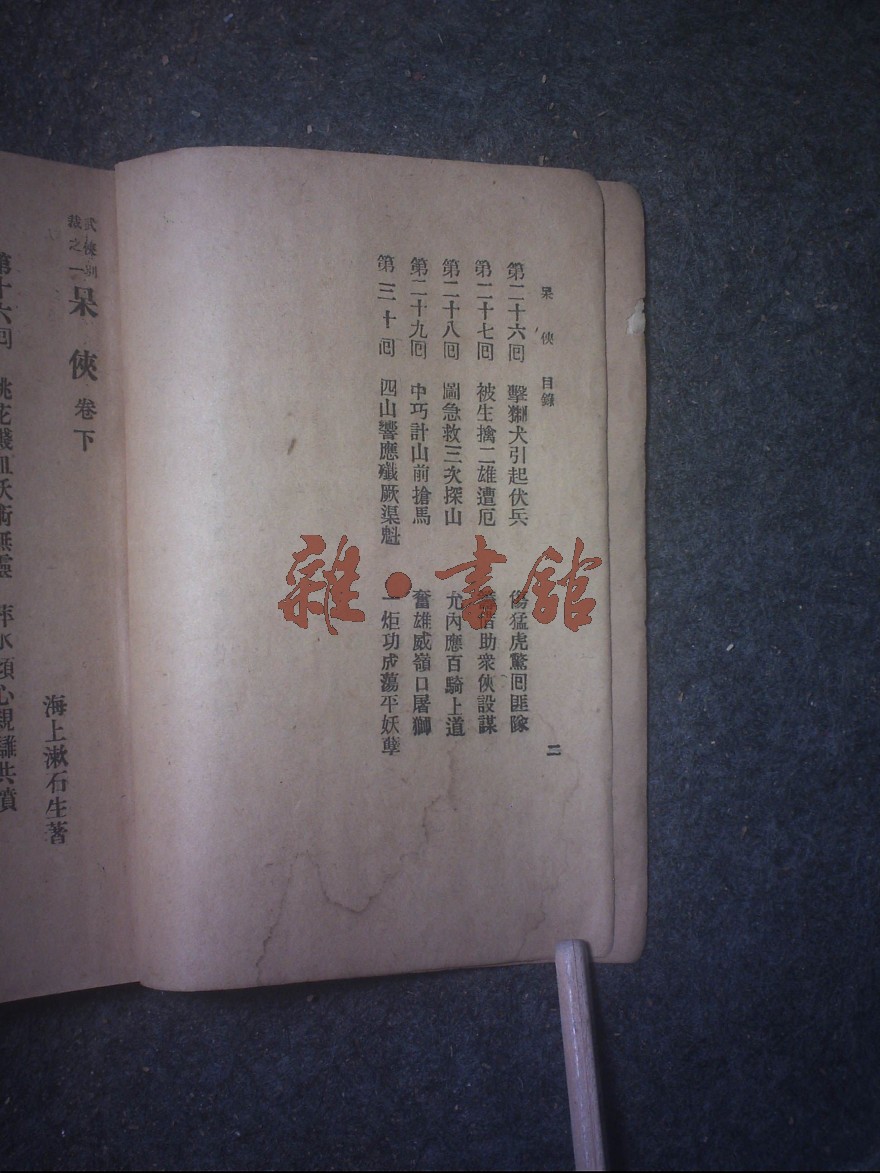 呆俠 目錄
二
第二十六回 擊猘犬引起伏兵 傷猛虎驚回匪隊
第二十七回 被生擒二雄遭厄 借助衆俠設謀
第二十八回 圖急救三次探山 允內應百騎上道
第二十九回 中巧計山前搶馬 奮雄威嶺口屠獅
第三十回 四山響應殲厥渠魁 一炬功成蕩平妖孽
雜·書館
武俠別裁之一 呆俠 卷下
海上漱石生著
第十六回 桃花濺血妖術無靈 萍水傾心親讎共憤